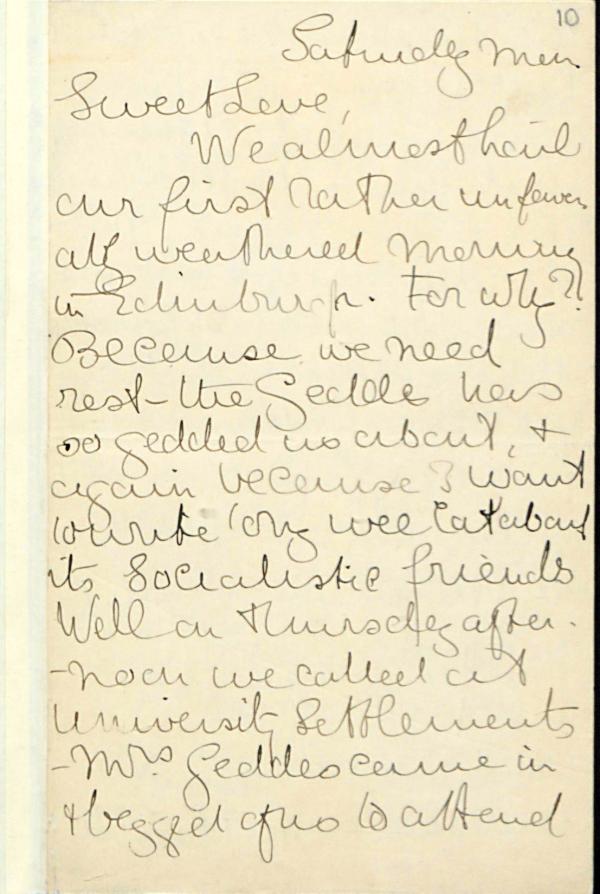 10
Saturday morn
Sweet Love,
We almost hail
our first rather unfavor-
ably weathered morning
in Edinburgh. For why?!
Because we need
rest - the Geddes has
so gedded us about, &
again because I want
to write 'ony wee Cat about
its Socialistic friends
Well on Thursday after-
-noon we called at
University Settlements
- Mrs Geddes came in
& begged of us to attend